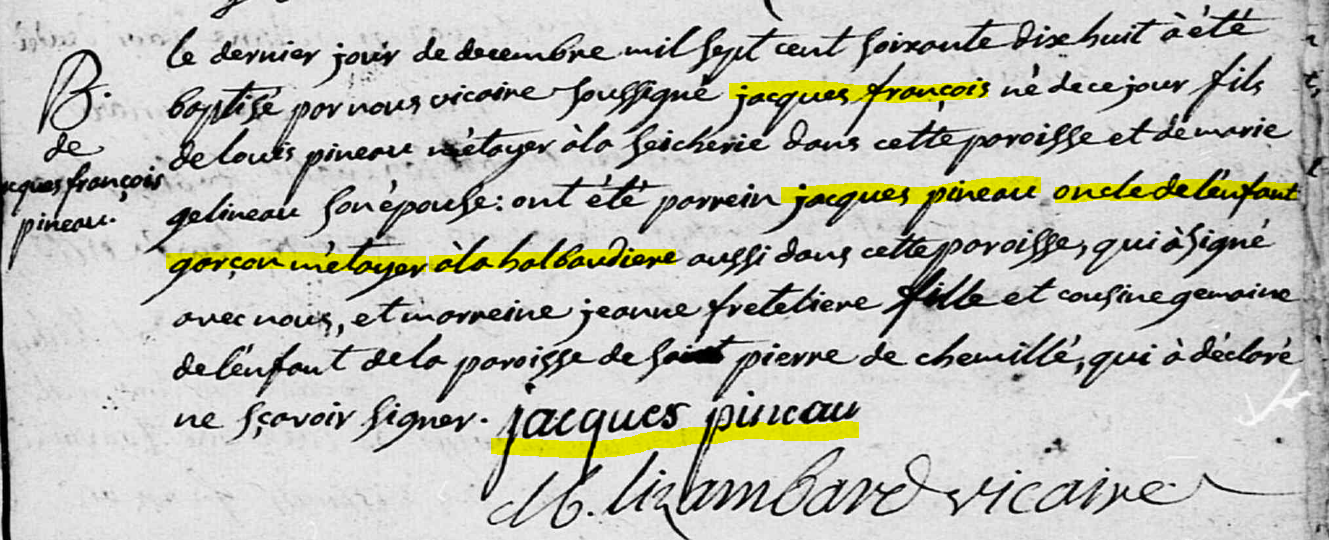 B.
de
jacques françois
pineau.
le dernier jour de decembre mil sept cent soixante dix huit à été
baptisé par nous vicaire soussigné jacques françois né de ce jour fils
de louis pineau métayer à la seicherie dans cette paroisse et de marie
gelineau son épouse: ont été parrein jacques pineau oncle de l'enfant
garçon métayer à la halbaudiere aussi dans cette paroisse, qui à signé
avec nous, et marreine jeanne freteliere fille et cousine gemaine
de l'enfant de la paroisse de saint pierre de chemillé, qui à déclaré
ne sçavoir signer. jacques pineau
vicaire